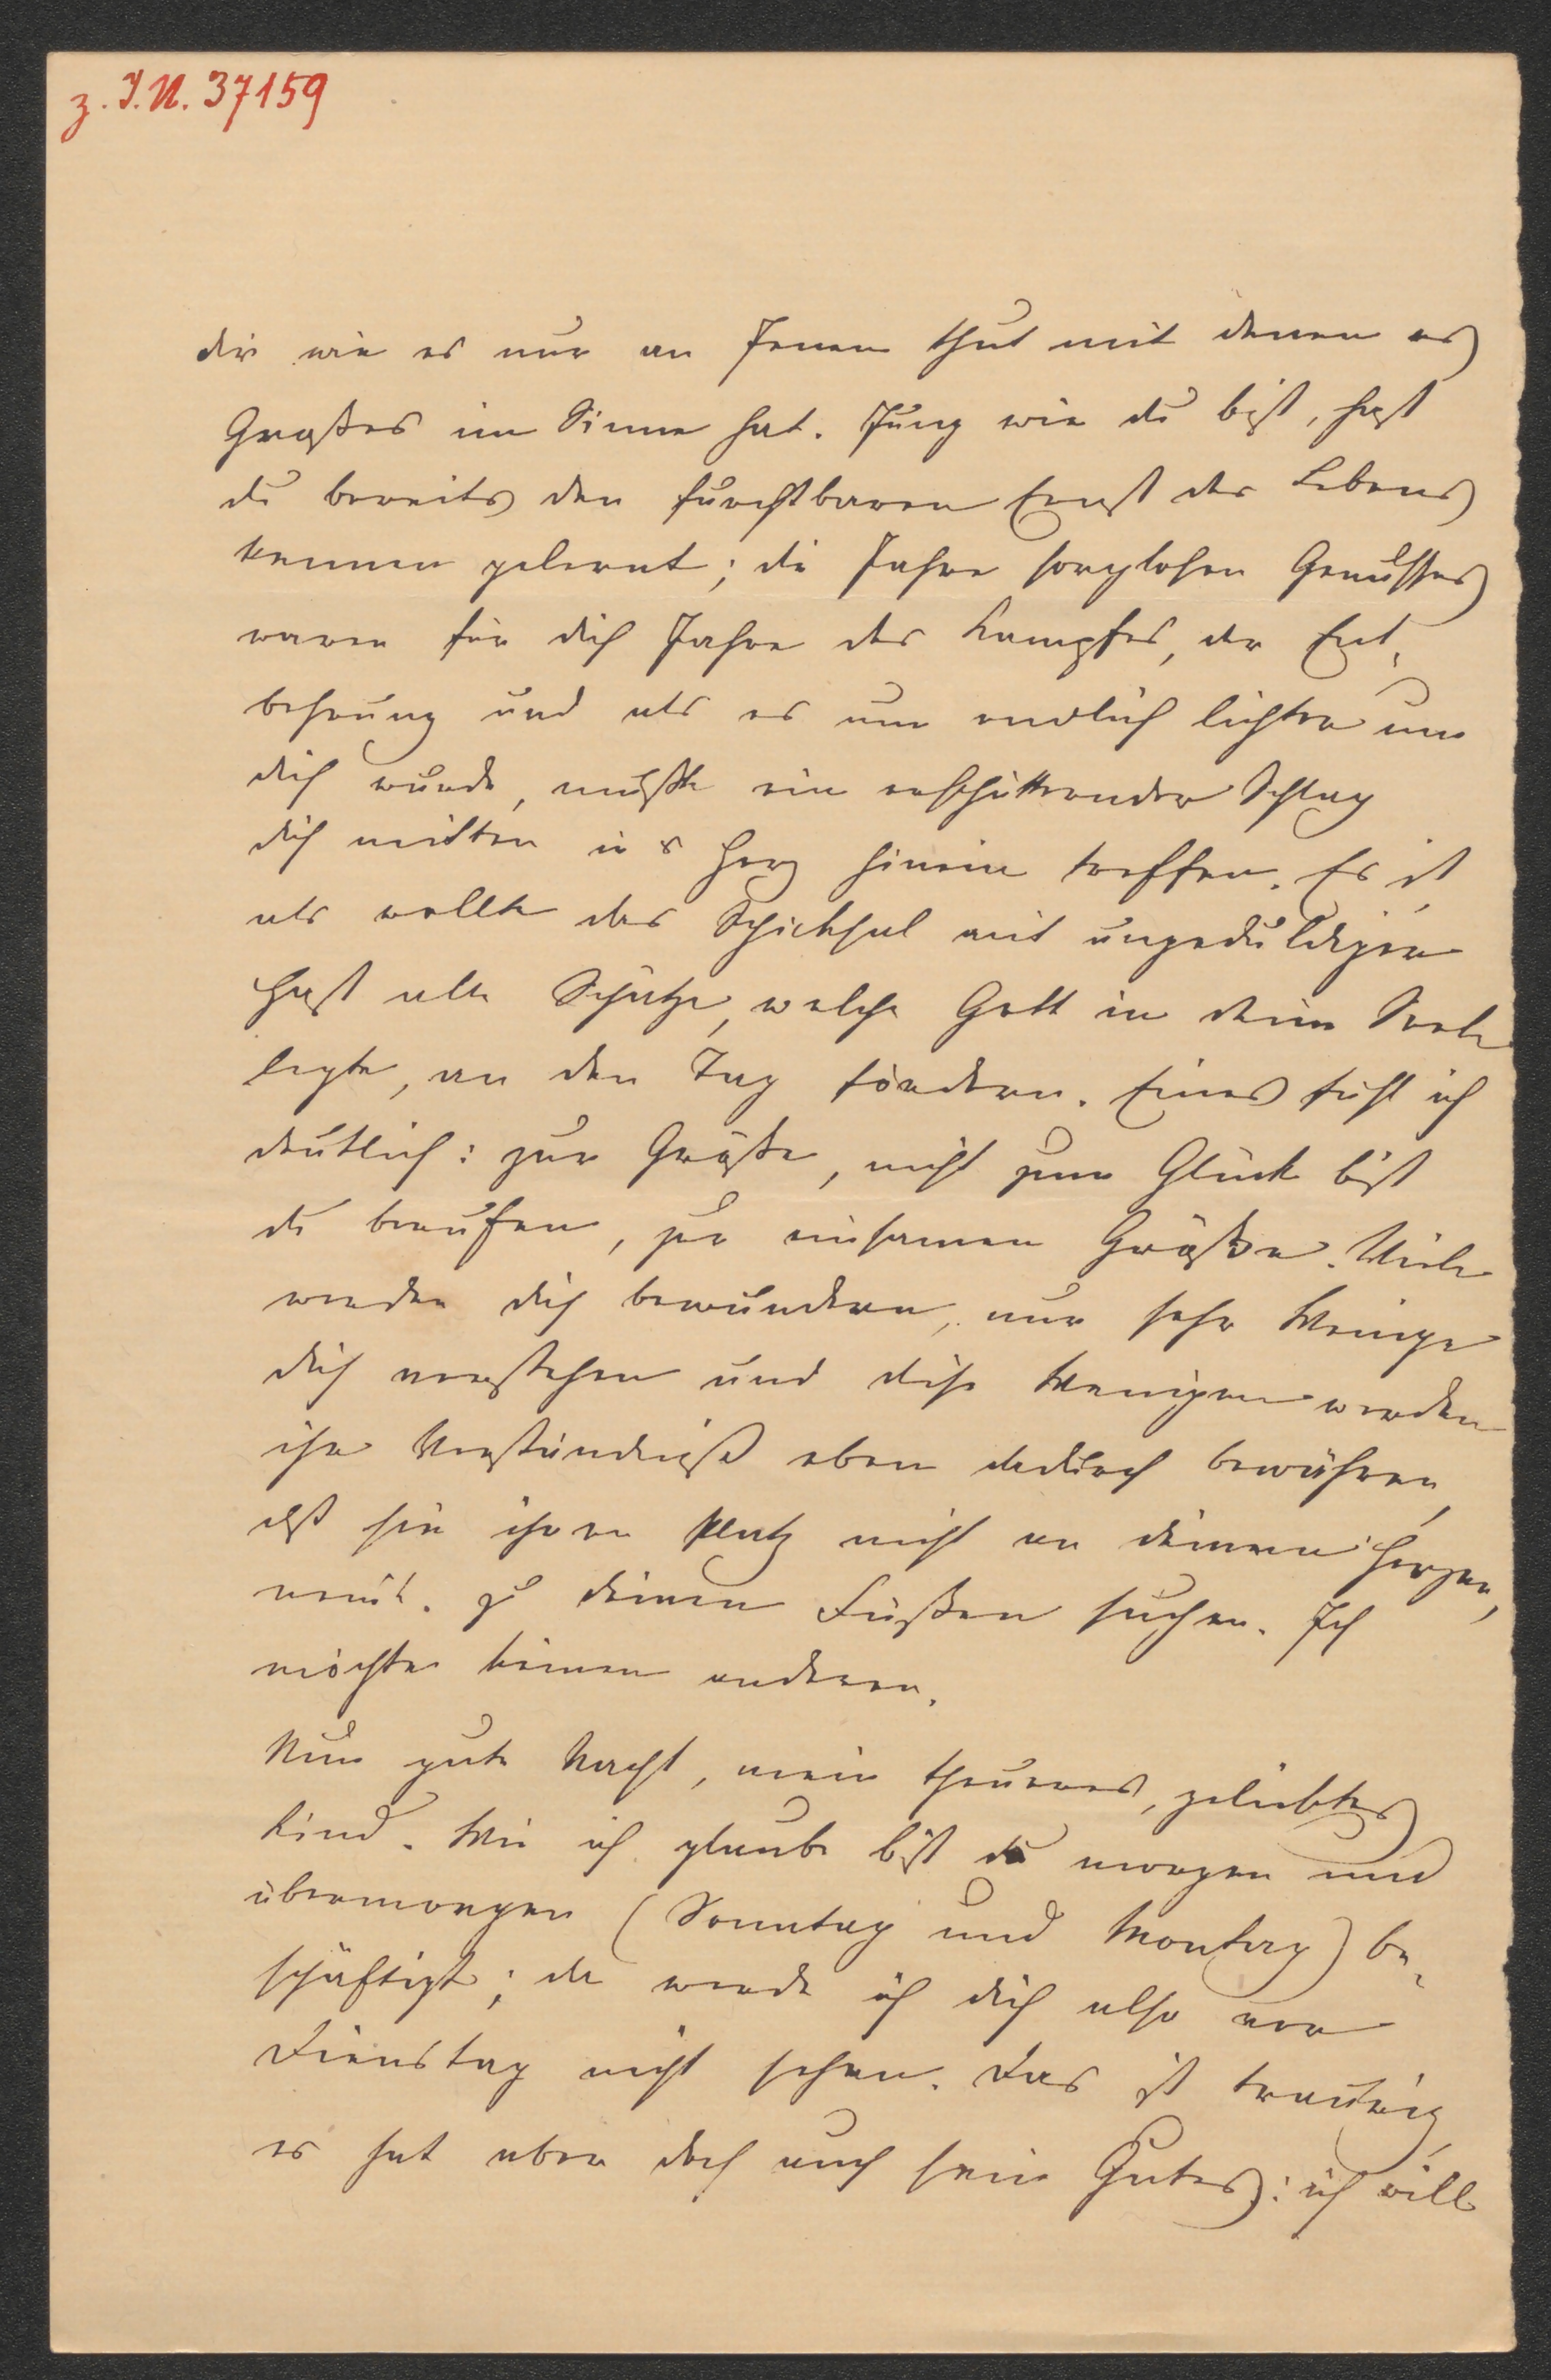 z. I.N. 37159
dir wie es nur an Jenen thut mit denen es
Großes im Sinne hat. Jung wie du bist, hast
du bereits den furchtbaren Ernst des Lebens
kennen gelernt; die Jahre sorglosen Genußes
waren für dich Jahre des Kampfes, der Ent-
behrung und als es nun endlich lichter um
dich wurde, mußte ein erschütternder Schlag
dich mitten in's Herz hinein treffen. Es ist
als wollte das Schicksal mit ungeduldiger
Hast alle Schätze, welche Gott in deine Seele
legte, an den Tag fördern. Eines fühl ich
deutlich: zur Größe, nicht zum Glück bist
du berufen, zur einsamen Größe. Viele
werden dich bewundern, nur sehr Wenige
dich verstehen und diese Wenigen werden
ihr Verständniß eben dadurch bewähren,
daß sie ihren Platz nicht an deinem Herzen,
nein. zu deinen Füßen suchen. Ich
möchte keinen anderen.
Nun gute Nacht, mein theueres, geliebtes
Kind. Wie ich glaube bist du morgen und
übermorgen (Sonntag und Montag) be-
schäftigt; da werde ich dich also vor
Dienstag nicht sehen. Das ist traurig,
es hat aber doch auch sein Gutes: ich will